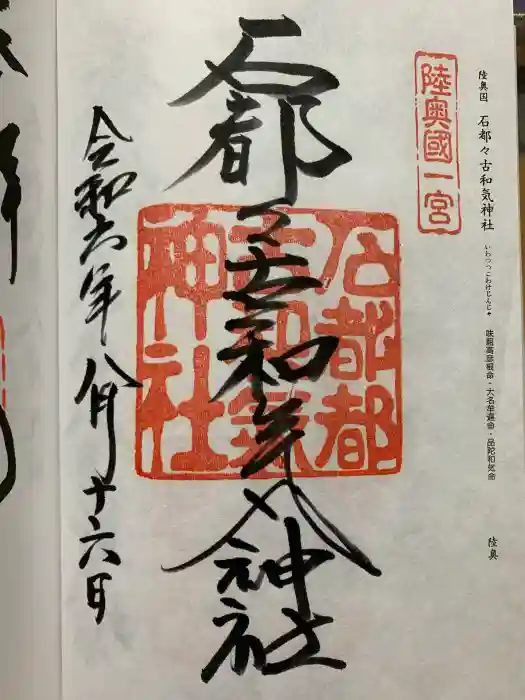 陸奥国 石都々古和気神社
いわつつこわけじんじゃ
味耜高彦根命・大名牟遅命・誉陀和気命
陸奥
陸奥國一宮
石都々古和気神社
石都都古和氣神社
令和六年八月十六日